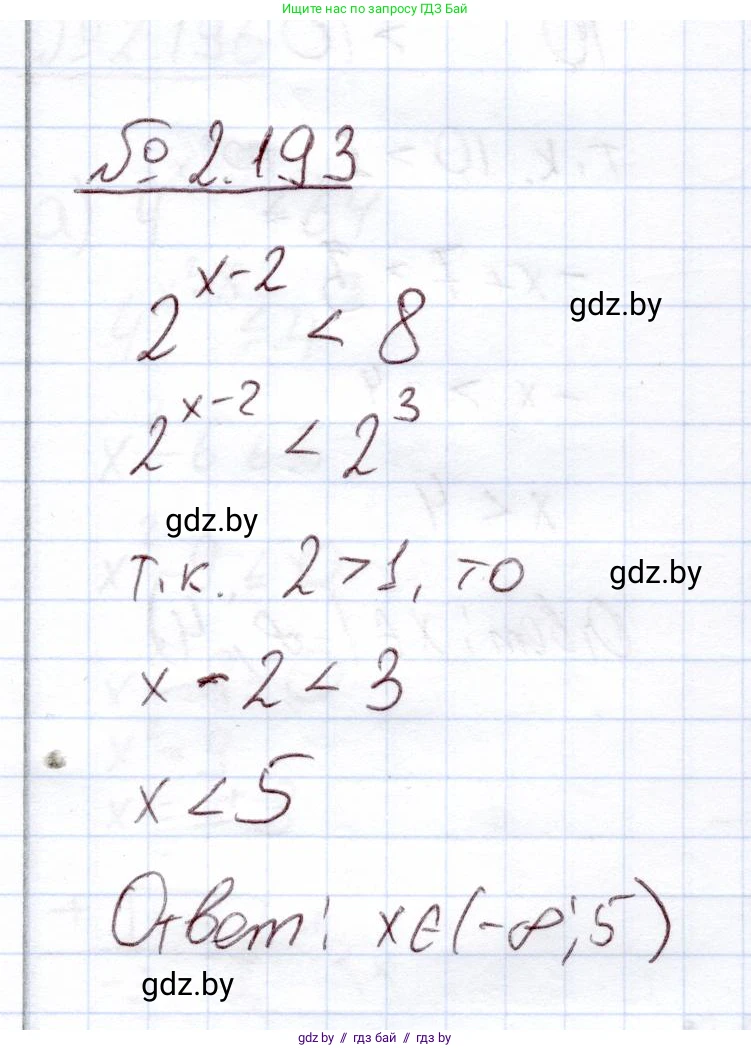 Ищите нас по запросу ГДЗ Бай
№ 2.193
2^(x-2) < 8
gdz.by
2^(x-2) < 2^3
gdz.by
т.к. 2 > 1, то
gdz.by
x - 2 < 3
x < 5
Ответ: x∈(-∞; 5)
gdz.by
gdz.by // гдз бай // гдз by